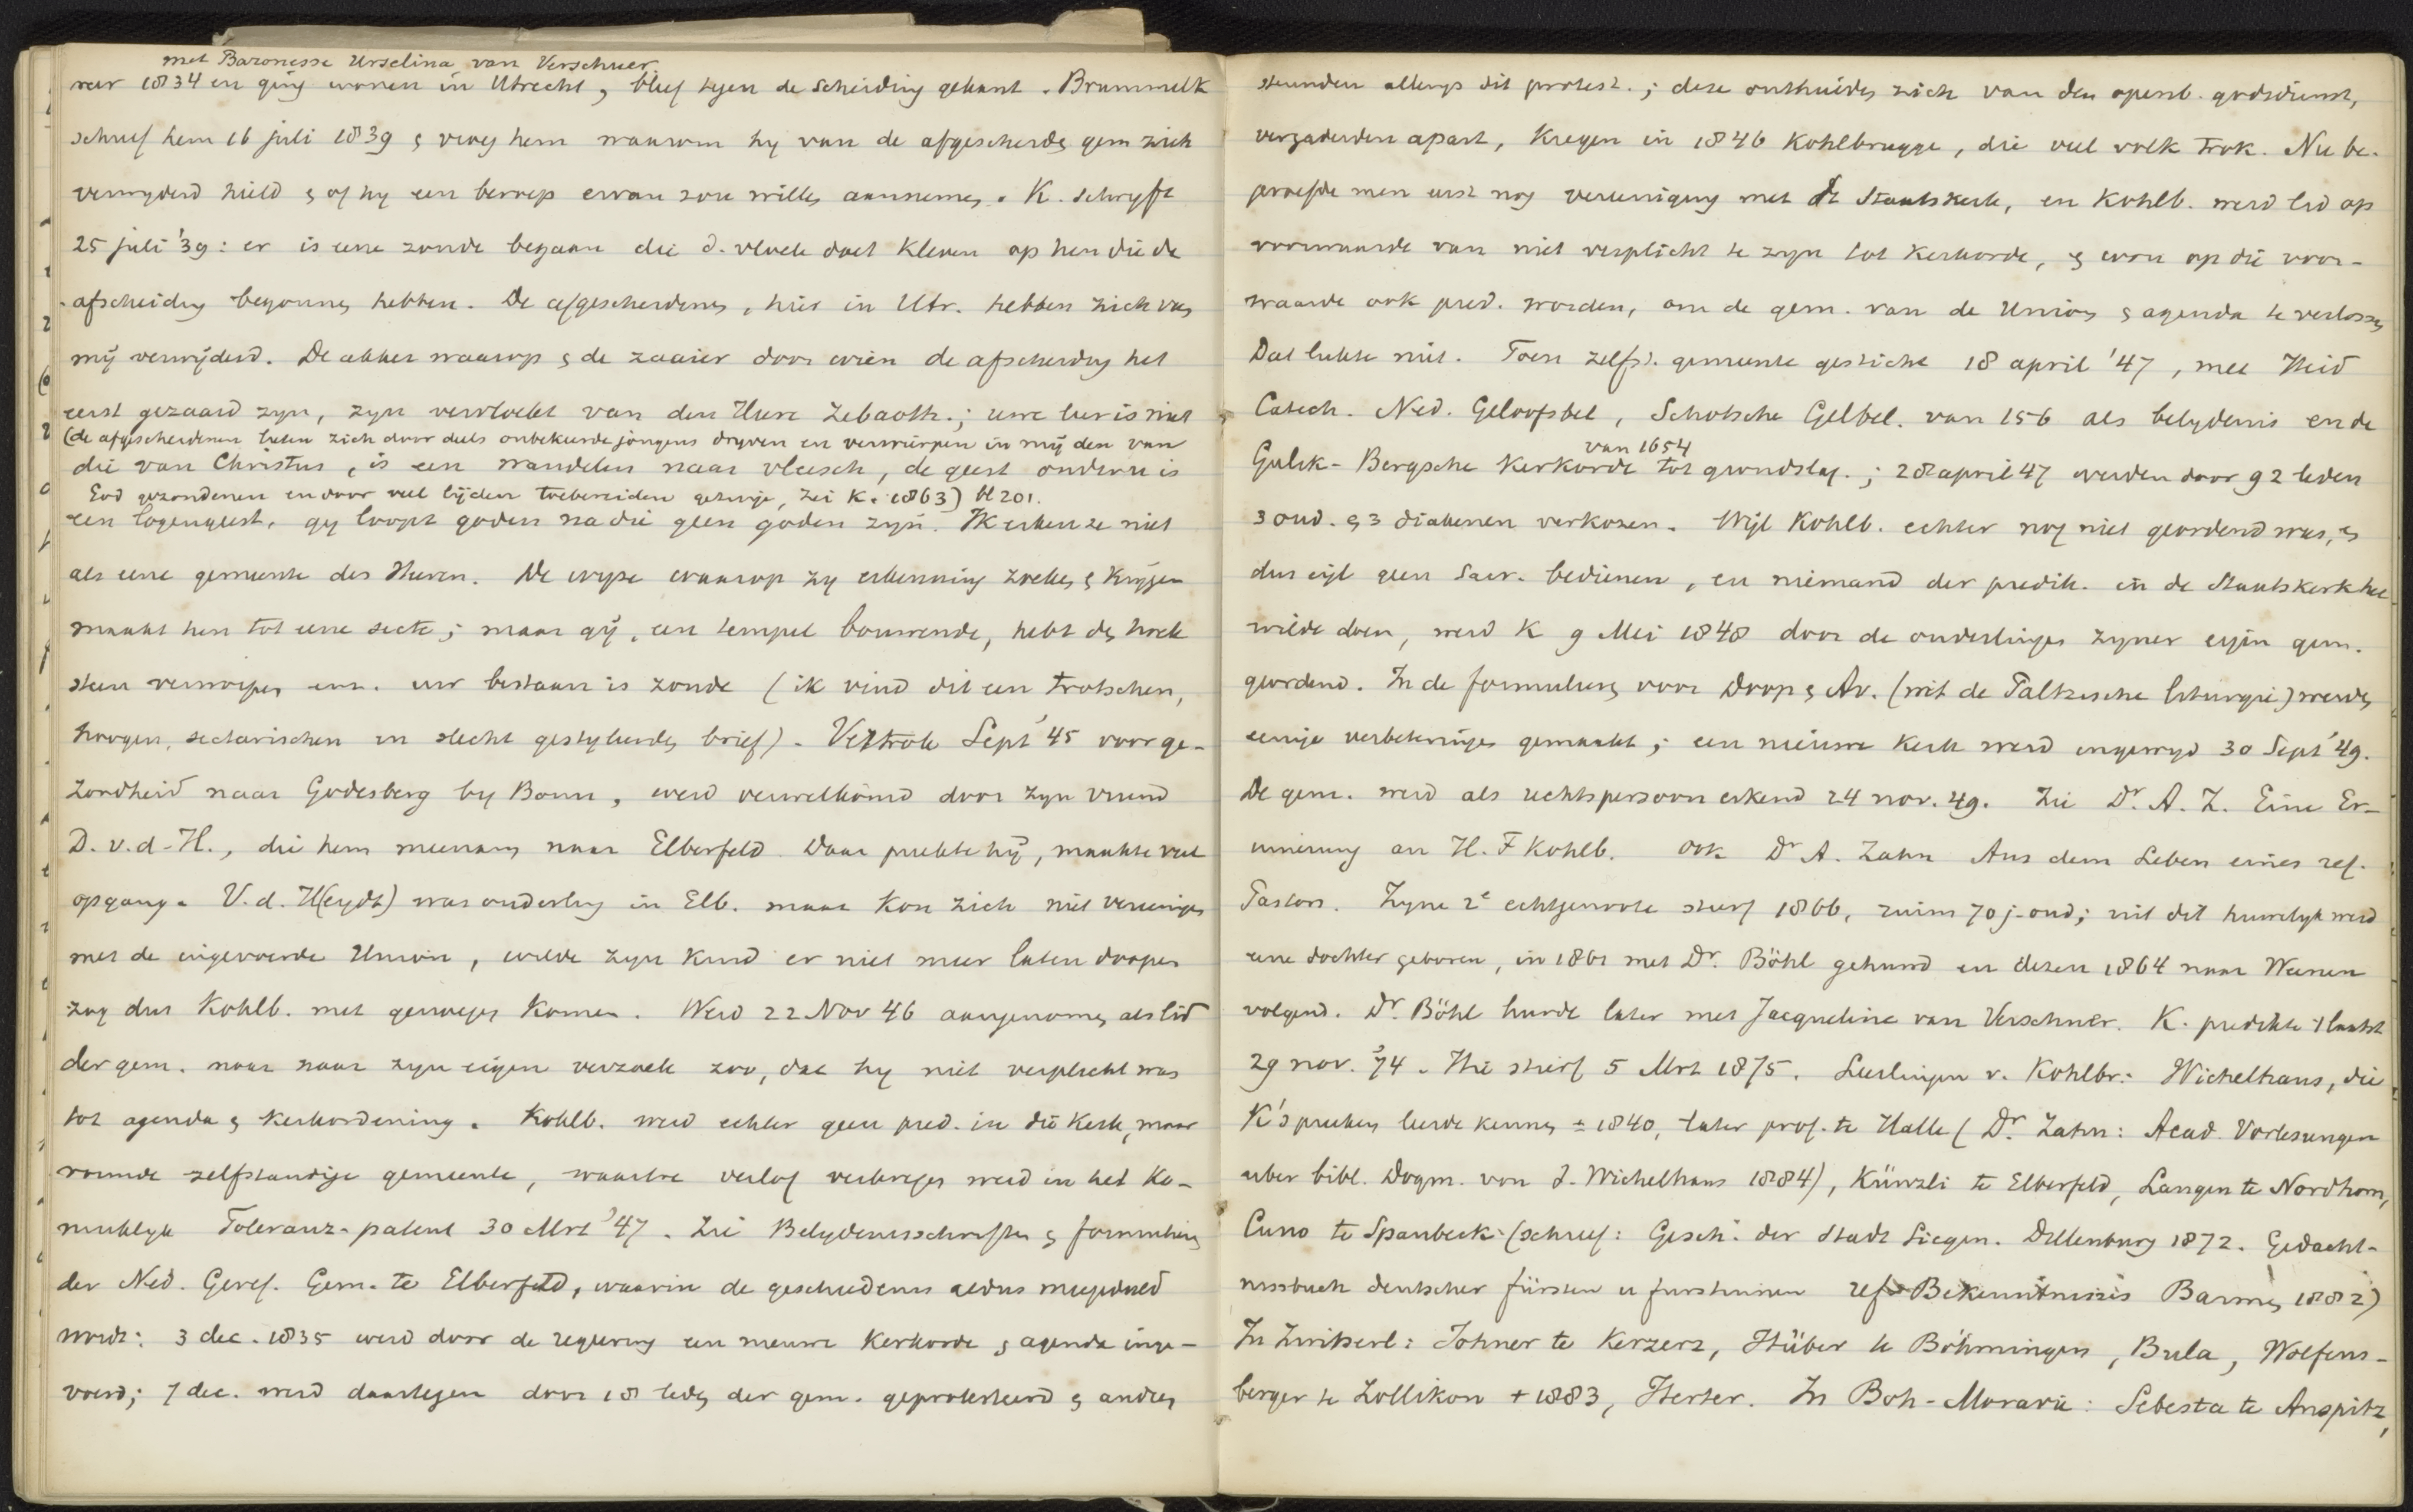 met Baronesse Urselina van Verschuer
1834 en ging wonen in Utrecht, bleef tegen de Scheiding gekant. Brummelk
schreef hem 16 juli 1839 & vroeg hem waarom hy van de afgescheids gem zich
verwyderd hield & of hy een beroep ervan zou willen aannemen. K. schryft
25 juli '39: er is eene zonde begaan die d. vloek doet kleven op hen die de
afscheiding begonnen hebben. De afgescheidenen, hier in Utr. hebben zich van
mij verwijderd. De akker waarop & de zaaier door wien de afscheiding het
eerst gezaaid zyn, zyn vervloekt van den Heere Zebaoth.; uwe leer is niet
(de afgescheidenen lieten zich door deels onbekeerde jongens dryven en verwierpen in mij den van
die van Christus, is een wandelen naar vleesch, de geest onder u is
God gezondenen en door veel lijden toebereiden getuige, zei K. 1863) bl 201.
een logengeest, gy loopt goden na die geen goden zyn. Ik erken ze niet
als eene gemeente des Heeren. De wyze waarop zy erkenning zoeken & krygen
maakt hen tot eene secte; maar gij, een tempel bouwende, hebt den hoek
steen verworpen enz. uw bestaan is zonde (ik vind dit een trotschen,
hoogen, sectarischen en slecht gestyleerden brief). Vertrok Sept '45 voor ge-
zondheid naar Godesberg by Bonn, werd verwelkomd door zyn vriend
D. v. d. H., die hem meenam naar Elberfeld. Daar preekte hij, maakte veel
opgang. V. d. H(eydt) was ouderling in Elb. maar kon zich niet vereenigen
met de ingevoerde Union, wilde zyn kind er niet meer laten doopen
zag dus Kohlb. met genoegen komen. Werd 22 Nov 46 aangenomen als lid
der gem. maar naar zyn eigen verzoek zoo, dat hy niet verplicht was
tot agenda & kerkordening. Kohlb. werd echter geen pred. in die Kerk, maar
zelfstandige gemeente, waartoe verlof verkregen werd in het Ko-
nuklyk Toleranz-patent 30 Mrt '47. Zie Belydenisschriften & formulieren
der Ned. Geref. Gem. te Elberfeld, waarin de geschiedenis aldus meegedeeld
wordt: 3 dec. 1835 werd door de regeering een nieuwe Kerkorde & agenda inge-
voerd; 7 dec. werd daartegen door 18 leden der gem. geprotesteerd & andren
steunden allengs dit protest.; deze onthielden zich van den openb. godsdienst,
vergaderden apart, kregen in 1846 Kohlbrugge, die veel volk trok. Nu be-
proefde men eerst nog vereeniging met de Staatskerk, en Kohlb. werd lid op
voorwaarde van niet verplicht te zyn tot Kerkorde, & wou op die voor-
waarde ook pred. worden, om de gem. van de Union & agenda te verlossen
Dat lukte niet. Toen zelfst. gemeente gesticht 18 april '47, met Heid
Catech. Ned. Geloofsbel, Schotsche Gelbel. van 156 als belydenis en de
van 1654
Gulik-Bergsche Kerkorde tot grondslag.; 28 april 47 werden door 92 leden
3 oud. & 3 diakenen verkozen. Wijl Kohlb. echter nog niet geordend was, &
dus eigl geen Sacr. bedienen, en niemand der predik. in de Staatskerk het
wilde doen, werd K 9 Mei 1848 door de ouderlingen zyner eigen gem.
geordend. In de formulieren voor Doop & Av. (uit de Paltzische liturgie) werden
eenige verbeteringen gemaakt; een nieuwe Kerk werd ingewyd 30 Sept '49.
De gem. werd als rechtspersoon erkend 24 nov. 49. Zie Dr. A. Z. Eine Er-
innerung an H. F Kohlb. ook Dr A. Zahn Aus dem Leben eines ref.
Pastors. Zyne 2e echtgenoote stierf 1866, ruim 70 j. oud; uit dit huwelyk werd
eene dochter geboren, in 1861 met Dr. Böhl gehuwd en dezen 1864 naar Weenen
volgend. Dr. Böhl huwde later met Jacqueline van Verschuer. K. predikte 't laatst
29 nov. '74. Hie stierf 5 Mrt 1875. Leerlingen v. Kohlbr: Wichelhaus, die
K's preeken leerde kennen ± 1840, later prof. te Halle (Dr. Zahn: Acad. Vorlesungen
uber bibl. Dogm. von J. Wichelhaus 1884), Künzli te Elberfeld, Langen te Nordhorn,
Cuno te Spanbeck (schreef: Gesch. der Stadt Siegen. Dillenburg 1872. Gedächt-
nissbuch deutscher fürsten u furstinnen ref. Bekenntnisses Barmen 1882)
In Zwitserl: Johner te Kerzerz, Hüber te Böhmingen, Bula, Wolfens-
berger te Zollikon + 1883, Herter. In Boh-Moravie: Sebesta te Auspitz,